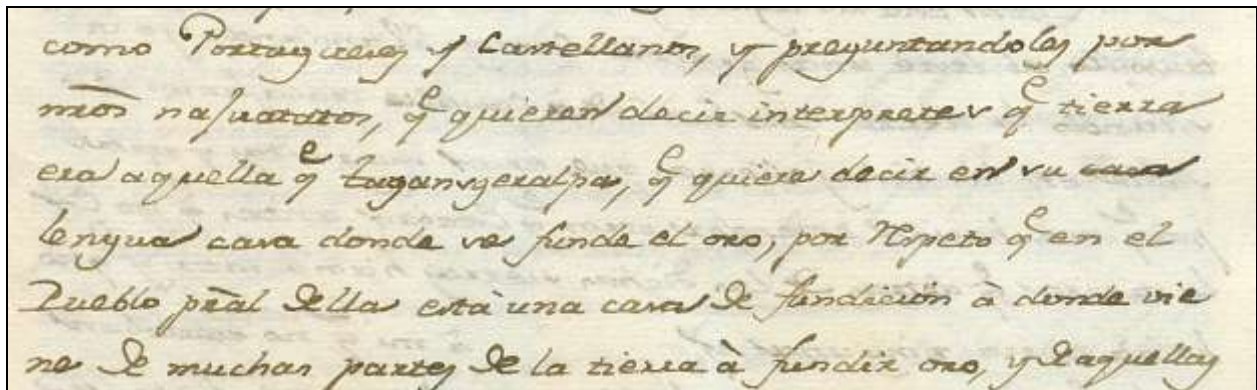 como Portugueses y Castellanos, y preguntandoles por
nr̃os nahuatatos, q̃ quieren decir interpretes q̃ tierra
era aquella q̃ taganuzeralpa, q̃ quiere decir en su casa
lengua casa donde se funde el oro, por respeto q̃ en el
Pueblo pr̃al della està una casa de fundiciòn à donde vie
ne de muchas partes de la tierra à fundir oro, y de aquellas